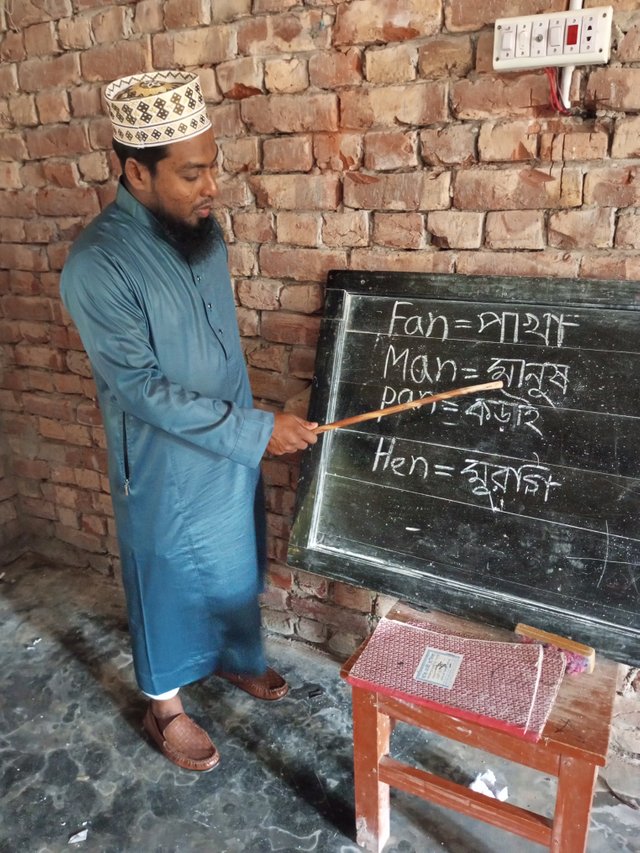 Fan = পাখা
Man = মানুষ
Pan = কড়াই
Hen = মুরগি